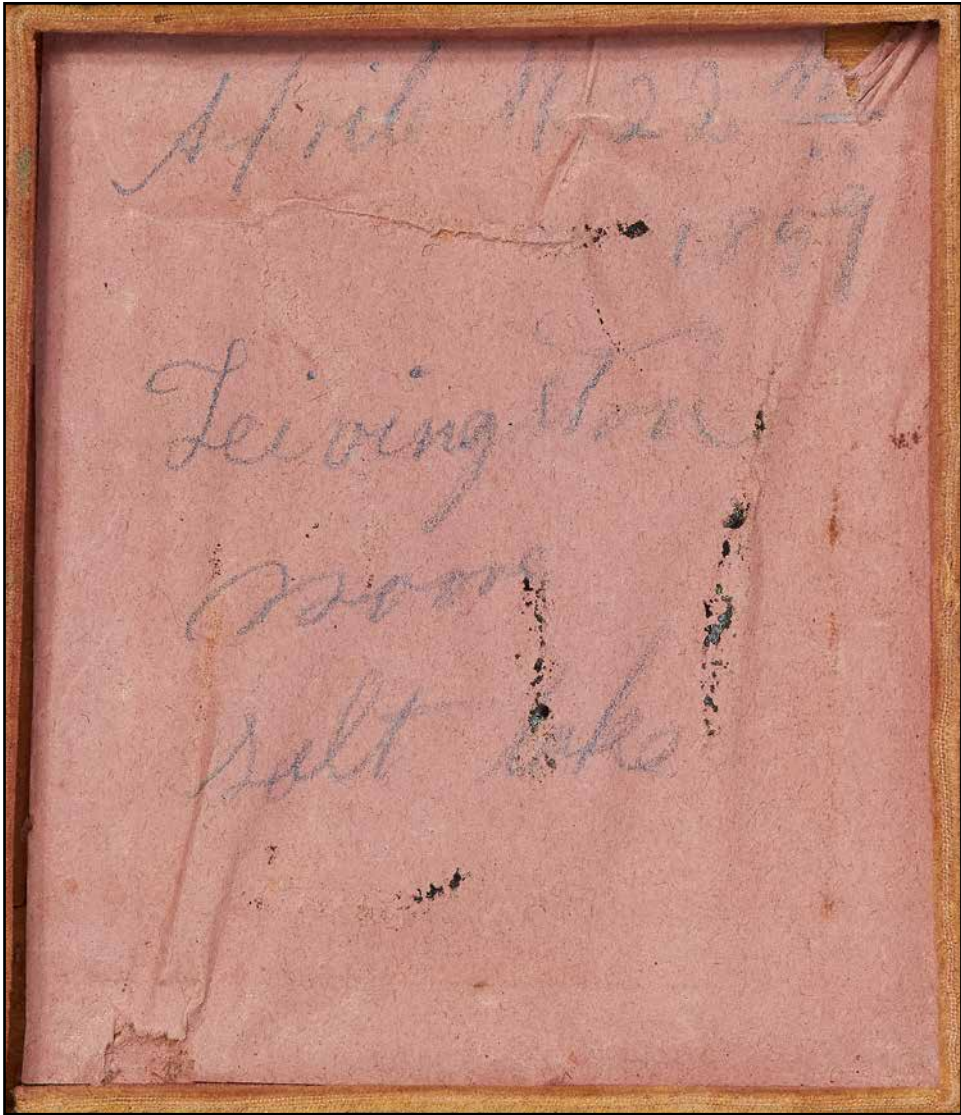 April 22
1859
Leivington
soon
salt lake